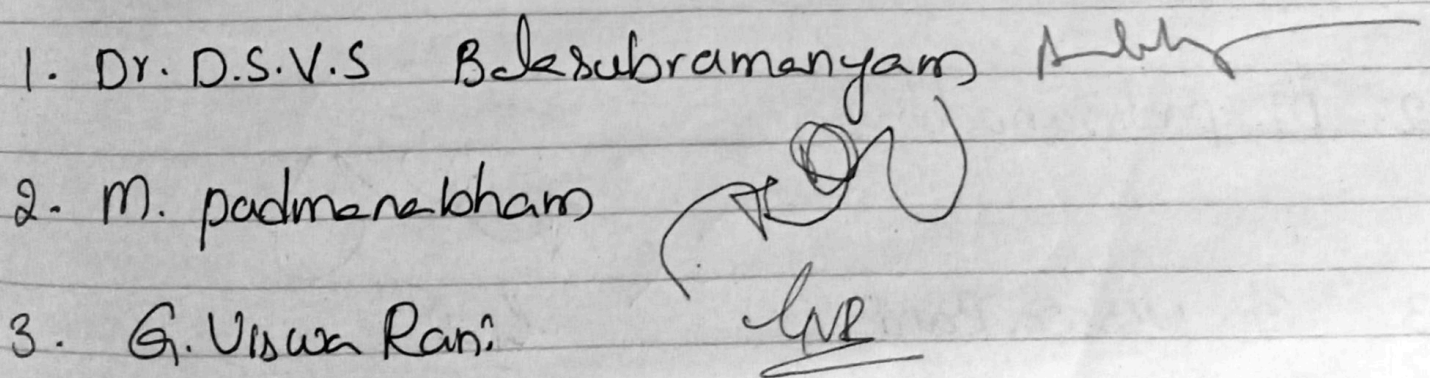 1. Dr. D.S.V.S Balasubramanyam
2. M. padmanabham
3. G. Viswa Rani GVR